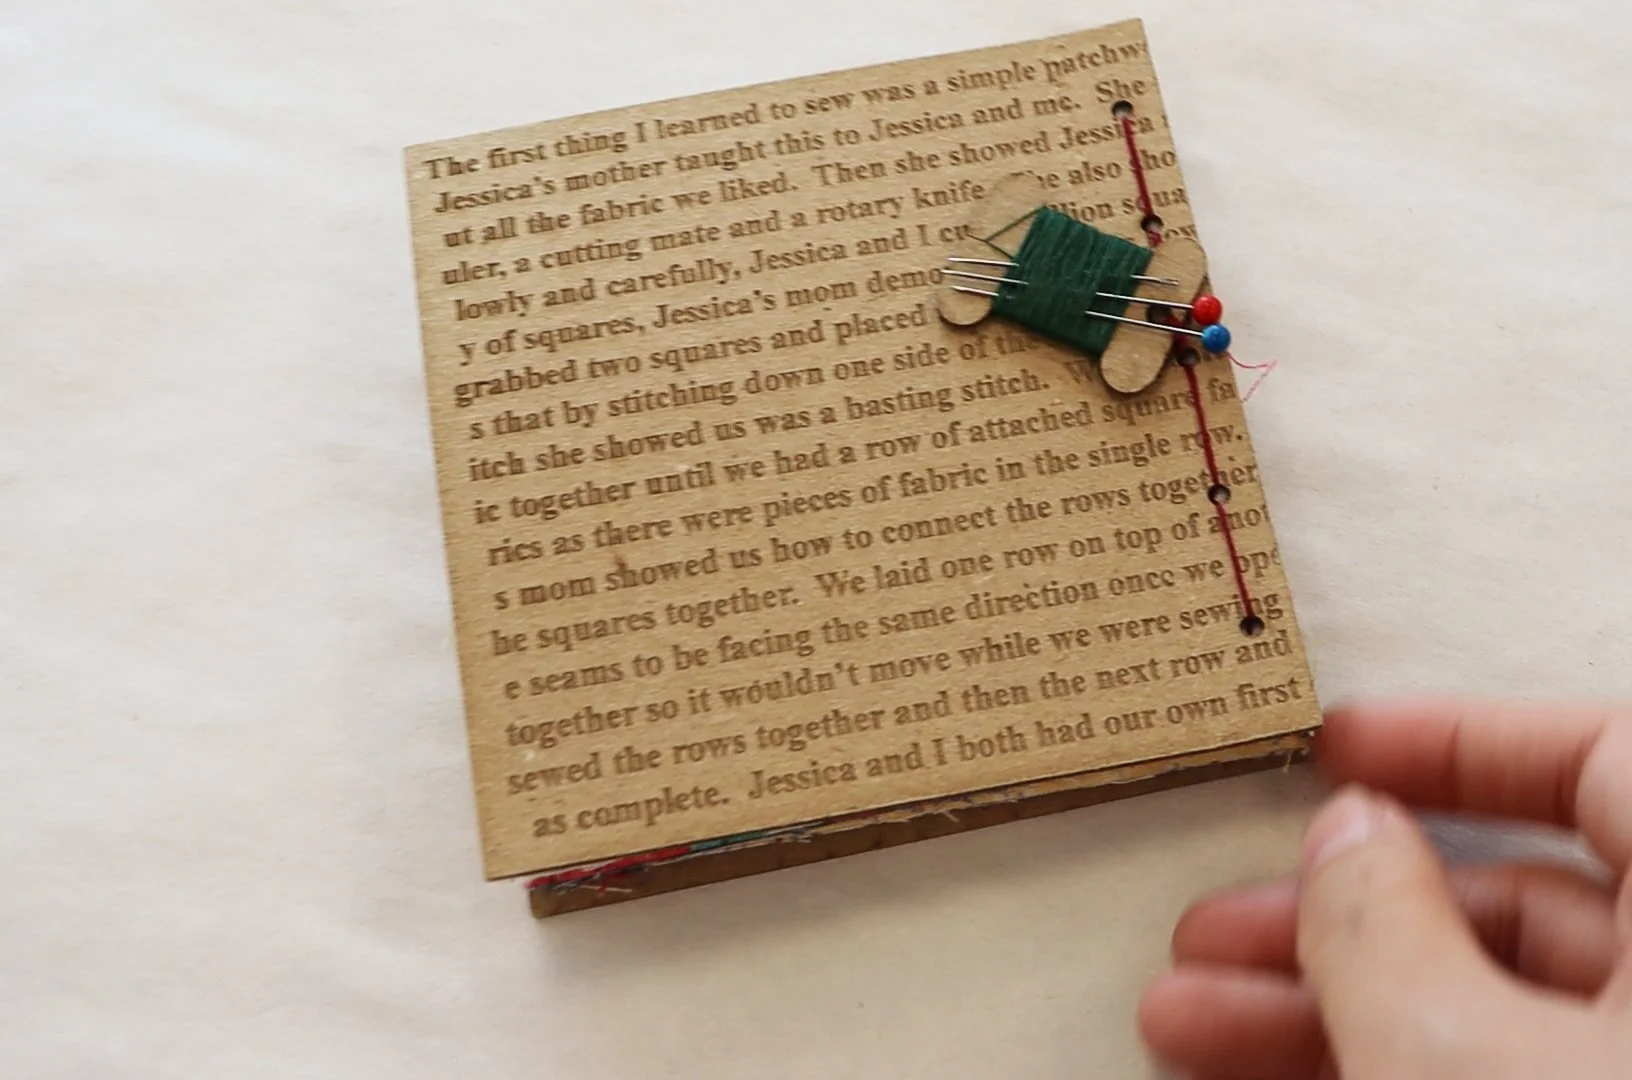 The first thing I learned to sew was a simple patchw
Jessica's mother taught this to Jessica and me. She
ut all the fabric we liked. Then she showed Jessica
uler, a cutting mate and a rotary knife also sho
lowly and carefully, Jessica and I cu llion squa
y of squares, Jessica's mom demo ow
grabbed two squares and placed
s that by stitching down one side of the
itch she showed us was a basting stitch.
ic together until we had a row of attached square fa
rics as there were pieces of fabric in the single row.
s mom showed us how to connect the rows together
he squares together. We laid one row on top of anot
e seams to be facing the same direction once we ope
together so it wouldn't move while we were sewing
sewed the rows together and then the next row and
as complete. Jessica and I both had our own first